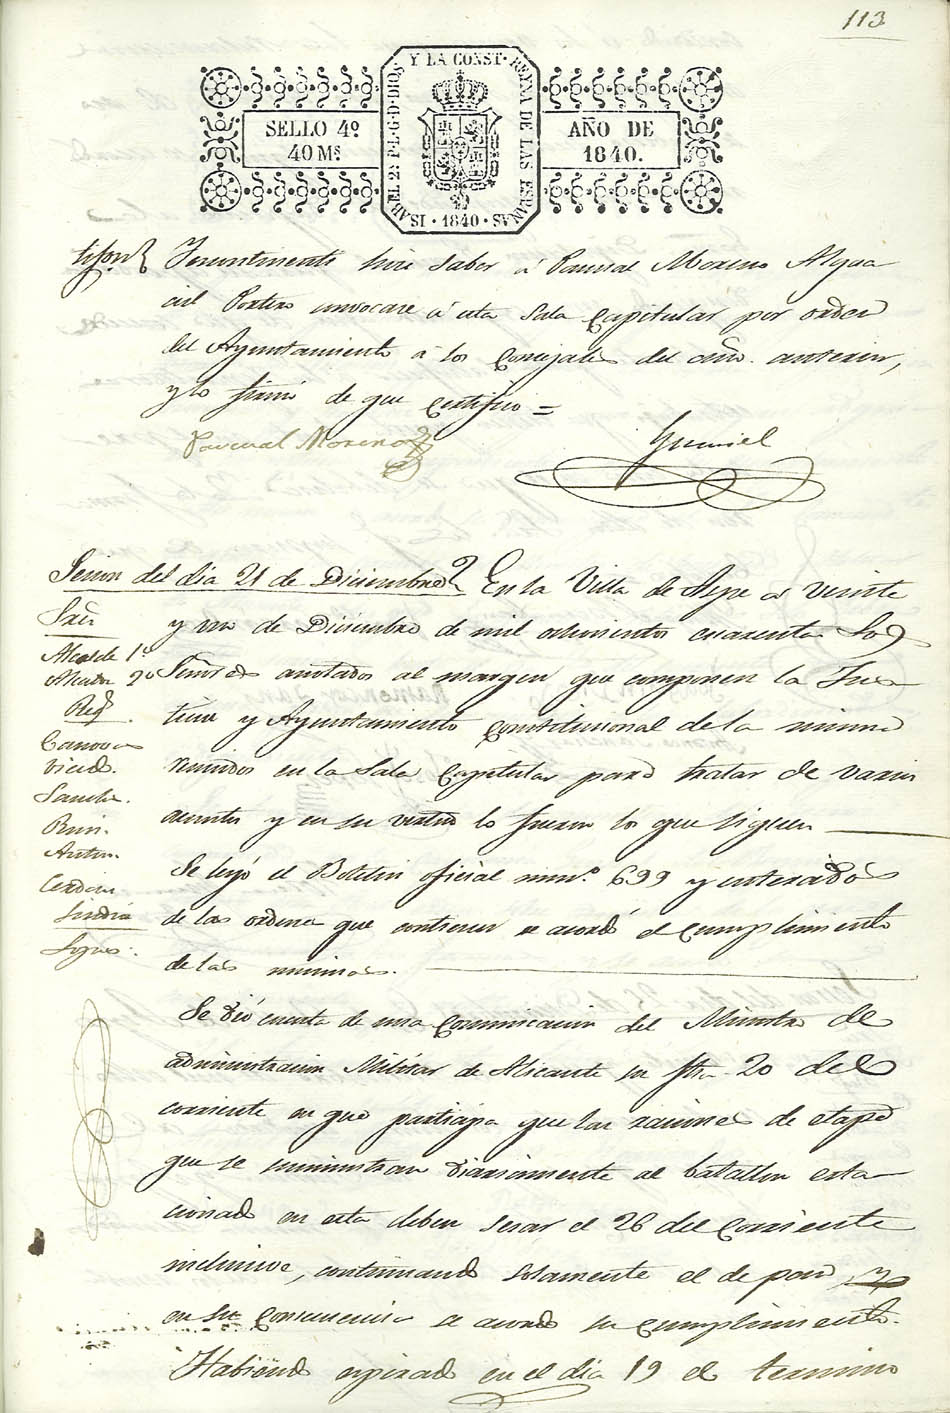 113
Y LA CONST.
ISABEL 2ª P.L.G.D.DIOS
REYNA DE LAS ESPAÑAS
SELLO 4º
40 Mˢ
AÑO DE
1840.
1840
hice saber á Pascual Moreno Algua
cil Portero convocase á esta Sala Capitular por orden
del Ayuntamiento á los Concejales del año anterior,
y lo firmó de que Certifico =
Pascual Moreno
Sesion del dia 21 de Diciembre
En la Villa de Aspe á veinte
y un de Diciembre de mil ochocientos cuarenta Los
Señores anotados al margen que componen la Jus
ticia y Ayuntamiento Constitucional de la misma
reunidos en la Sala Capitular para tratar de varios
asuntos y en su virtud lo fueron los que siguen
Sres
Alcalde 1º
Alcalde 2º
Regs
Canovas
Sanchez.
Ruiz.
Anton.
Cerdan
Sindico
Se leyó el Boletin oficial num.º 699 y enterados
de las ordenes que contienen se acordó el cumplimiento
de las mismas.
Se dió cuenta de una Comunicacion del Ministro de
administracion Militar de Alicante su fha 20 del
corriente en que participa que las raciones de etapa
que se suministran diariamente al batallon esta
cionado en esta deben cesar el 26 del corriente
inclusive, continuando solamente el de pan, y
en su consecuencia se acordó su cumplimiento.
Habiendo espirado en el dia 19 el termino